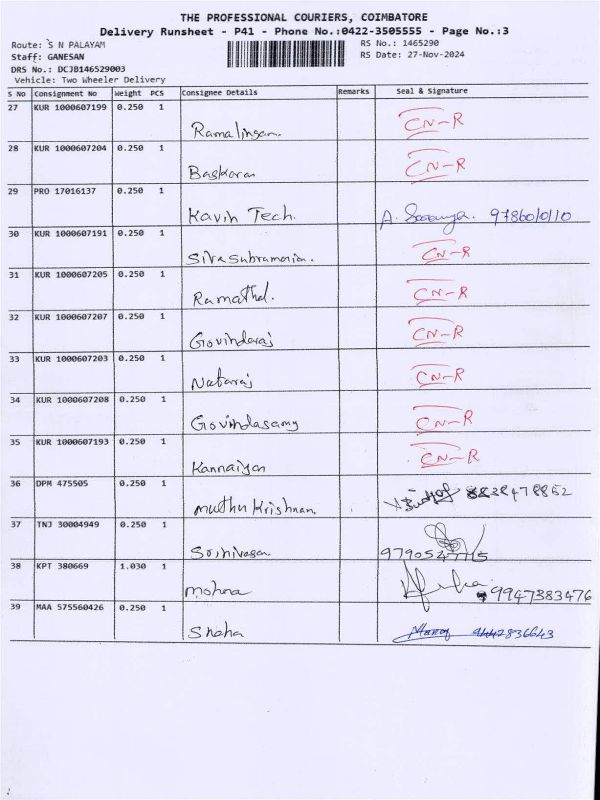 THE PROFESSIONAL COURIERS, COIMBATORE
Delivery Runsheet - P41 - Phone No.:0422-3505555 - Page No.:3
Route: S N PALAYAM RS No.: 1465290
Staff: GANESAN RS Date: 27-Nov-2024
DRS No.: DCJB146529003
Vehicle: Two Wheeler Delivery
S No Consignment No Weight PCS Consignee Details Remarks Seal & Signature
27 KUR 1000607199 0.250 1 Ramalingam. CN-R
28 KUR 1000607204 0.250 1 Baskaran CN-R
29 PRO 17016137 0.250 1 Kavin Tech. A. 9786010110
30 KUR 1000607191 0.250 1 Sivasubramanian. CN-R
31 KUR 1000607205 0.250 1 Ramathal. CN-R
32 KUR 1000607207 0.250 1 Govindaraj CN-R
33 KUR 1000607203 0.250 1 Nataraj CN-R
34 KUR 1000607208 0.250 1 Govindasamy CN-R
35 KUR 1000607193 0.250 1 Kannaiyan CN-R
36 DPM 475505 0.250 1 Muthu Krishnan. 8838478852
37 TNJ 30004949 0.250 1 Srinivasan
38 KPT 380669 1.030 1 Mohna 9947383476
39 MAA 575560426 0.250 1 Sneha 9442836643